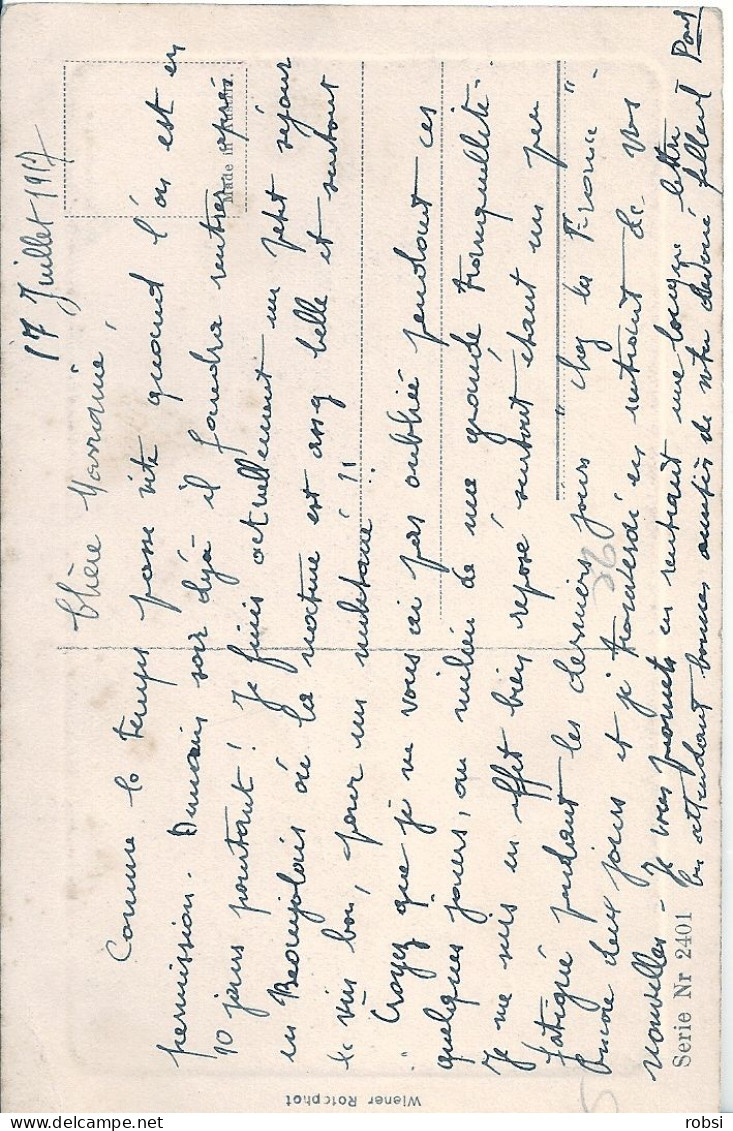 17 Juillet 1917
Chère Marraine,
Comme le temps passe vite quand l'on est en
permission. Demain soir déjà il faudra rentrer après
10 jours pourtant ! Je finis actuellement un petit séjour
en Beaujolais où la nature est assez belle et surtout
le vin bon, pour un militaire !!
Croyez que je ne vous ai pas oubliée pendant ces
quelques jours, au milieu de ma grande tranquillité.
Je me suis en effet bien reposé surtout étant un peu
fatigué pendant les derniers jours "chez les France"
Encore deux jours et je trouverai en rentrant de vos
nouvelles - Je vous promets en rentrant une longue lettre
En attendant bonnes amitiés de votre dévoué filleul
Made in
Serie Nr 2401
Wiener Rotophot